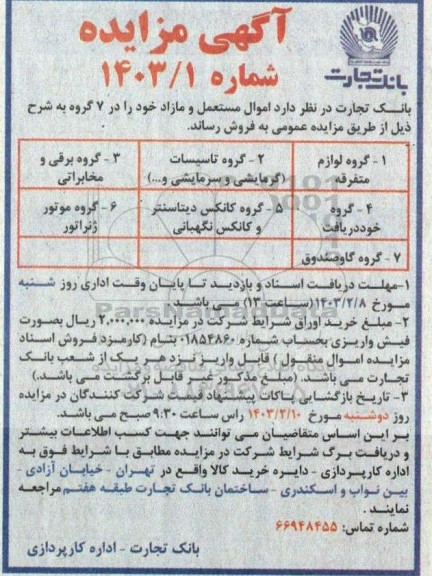 آگهی مزایده
شماره ۱۴۰۳/۱
بانک تجارت
بانک تجارت در نظر دارد اموال مستعمل و مازاد خود را در ۷ گروه به شرح
ذیل از طریق مزایده عمومی به فروش رساند.
۱ - گروه لوازم متفرقه
۲ - گروه تاسیسات (گرمایشی و سرمایشی و...)
۳ - گروه برقی و مخابراتی
۴ - گروه خوددریافت
۵ - گروه کانکس دیتاسنتر و کانکس نگهبانی
۶ - گروه موتور ژنراتور
۷ - گروه گاوصندوق
۱-مهلت دریافت اسناد و بازدید تا پایان وقت اداری روز شنبه
مورخ ۱۴۰۳/۲/۸(ساعت ۱۳) می باشد .
۲- مبلغ خرید اوراق شرایط شرکت در مزایده ۲,۰۰۰,۰۰۰ ریال بصورت
فیش واریزی بحساب شماره ۰۱۸۵۴۸۶۰ بنام (کارمزد فروش اسناد
مزایده اموال منقول ) قابل واریز نزد هر یک از شعب بانک
تجارت می باشد. (مبلغ مذکور غیر قابل برگشت می باشد.)
۳- تاریخ بازگشایی پاکات پیشنهاد قیمت شرکت کنندگان در مزایده
روز دوشنبه مورخ ۱۴۰۳/۲/۱۰ راس ساعت ۹:۳۰ صبح می باشد.
بر این اساس متقاضیان می توانند جهت کسب اطلاعات بیشتر
و دریافت برگ شرایط شرکت در مزایده مطابق با شرایط فوق به
اداره کارپردازی - دایره خرید کالا واقع در تهران - خیابان آزادی -
بین نواب و اسکندری - ساختمان بانک تجارت طبقه هفتم مراجعه
نمایند .
شماره تماس: ۶۶۹۴۸۴۵۵
بانک تجارت - اداره کارپردازی
ParsNamadData